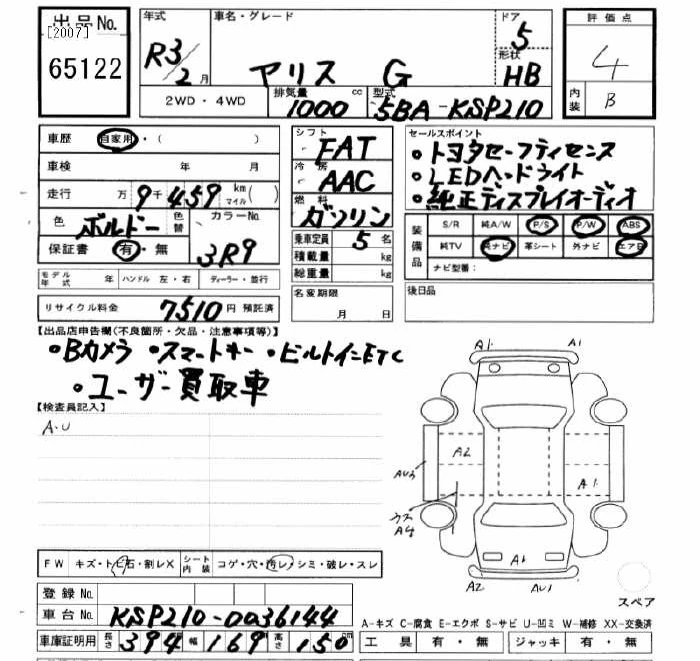 出品No.
[2007]
65122
年式
R3/2月
車名・グレード
ヤリス G
ドア
5
形状
HB
評価点
4
内装
B
2WD・4WD
排気量
1000 cc
型式
5BA-KSP210
車歴 自家用・( )
車検 年 月
走行 万 9千459 km マイル ( )
色 ボルドー 色替
カラーNo.
3R9
保証書 有・無
モデル年式 年 ハンドル 左・右 ディーラー・並行
リサイクル料金 7510円 預託済
シフト
FAT
冷房
AAC
燃料
ガソリン
乗車定員 5 名
積載量 kg
総重量 kg
名変期限
月 日
セールスポイント
・トヨタセーフティセンス
・LEDヘッドライト
・純正ディスプレイオーディオ
装備品
S/R 純A/W P/S P/W ABS
純TV 純ナビ 革シート 外ナビ エアB
ナビ型番:
後日品
【出品店申告欄(不良箇所・欠品・注意事項等)】
・Bカメラ ・スマートキー ・ビルトインETC
・ユーザー買取車
【検査員記入】
A・U
A1 A1
A2
AU3
A1
ウス
A4
A1
A2 AU1
スペア
FW キズ・トビ石・割レX シート内装 コゲ・穴・汚レ・シミ・破レ・スレ
登録No.
車台No. KSP210-0036144
車庫証明用 長さ 394 幅 169 高さ 150 cm
A-キズ C-腐食 E-エクボ S-サビ U-凹ミ W-補修 XX-交換済
工具 有・無 ジャッキ 有・無